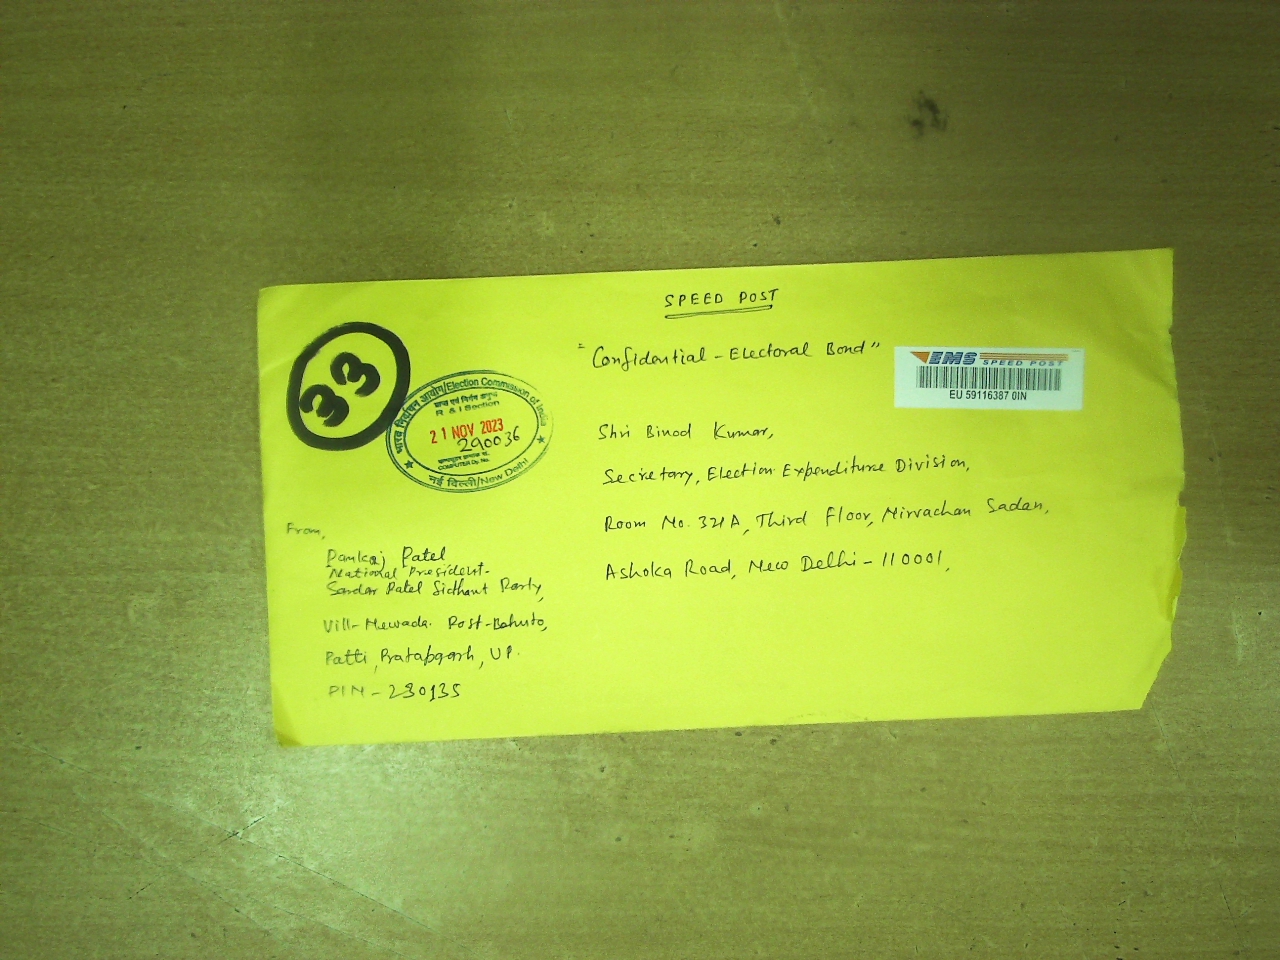 SPEED POST
"Confidential - Electoral Bond"
EMS SPEED POST
EU 59116387 0IN
33
भारत निर्वाचन आयोग/Election Commission of India
R & I Section
21 NOV 2023
290036
COMPUTER Dy. No.
नई दिल्ली/New Delhi
Shri Binod Kumar,
Secretary, Election Expenditure Division,
Room No. 321A, Third Floor, Nirvachan Sadan,
Ashoka Road, New Delhi - 110001,
From,
Pankaj Patel
National President.
Sardar Patel Sidhant Party,
Vill- Mewada. Post-
Patti, Pratapgarh, UP.
PIN - 230135